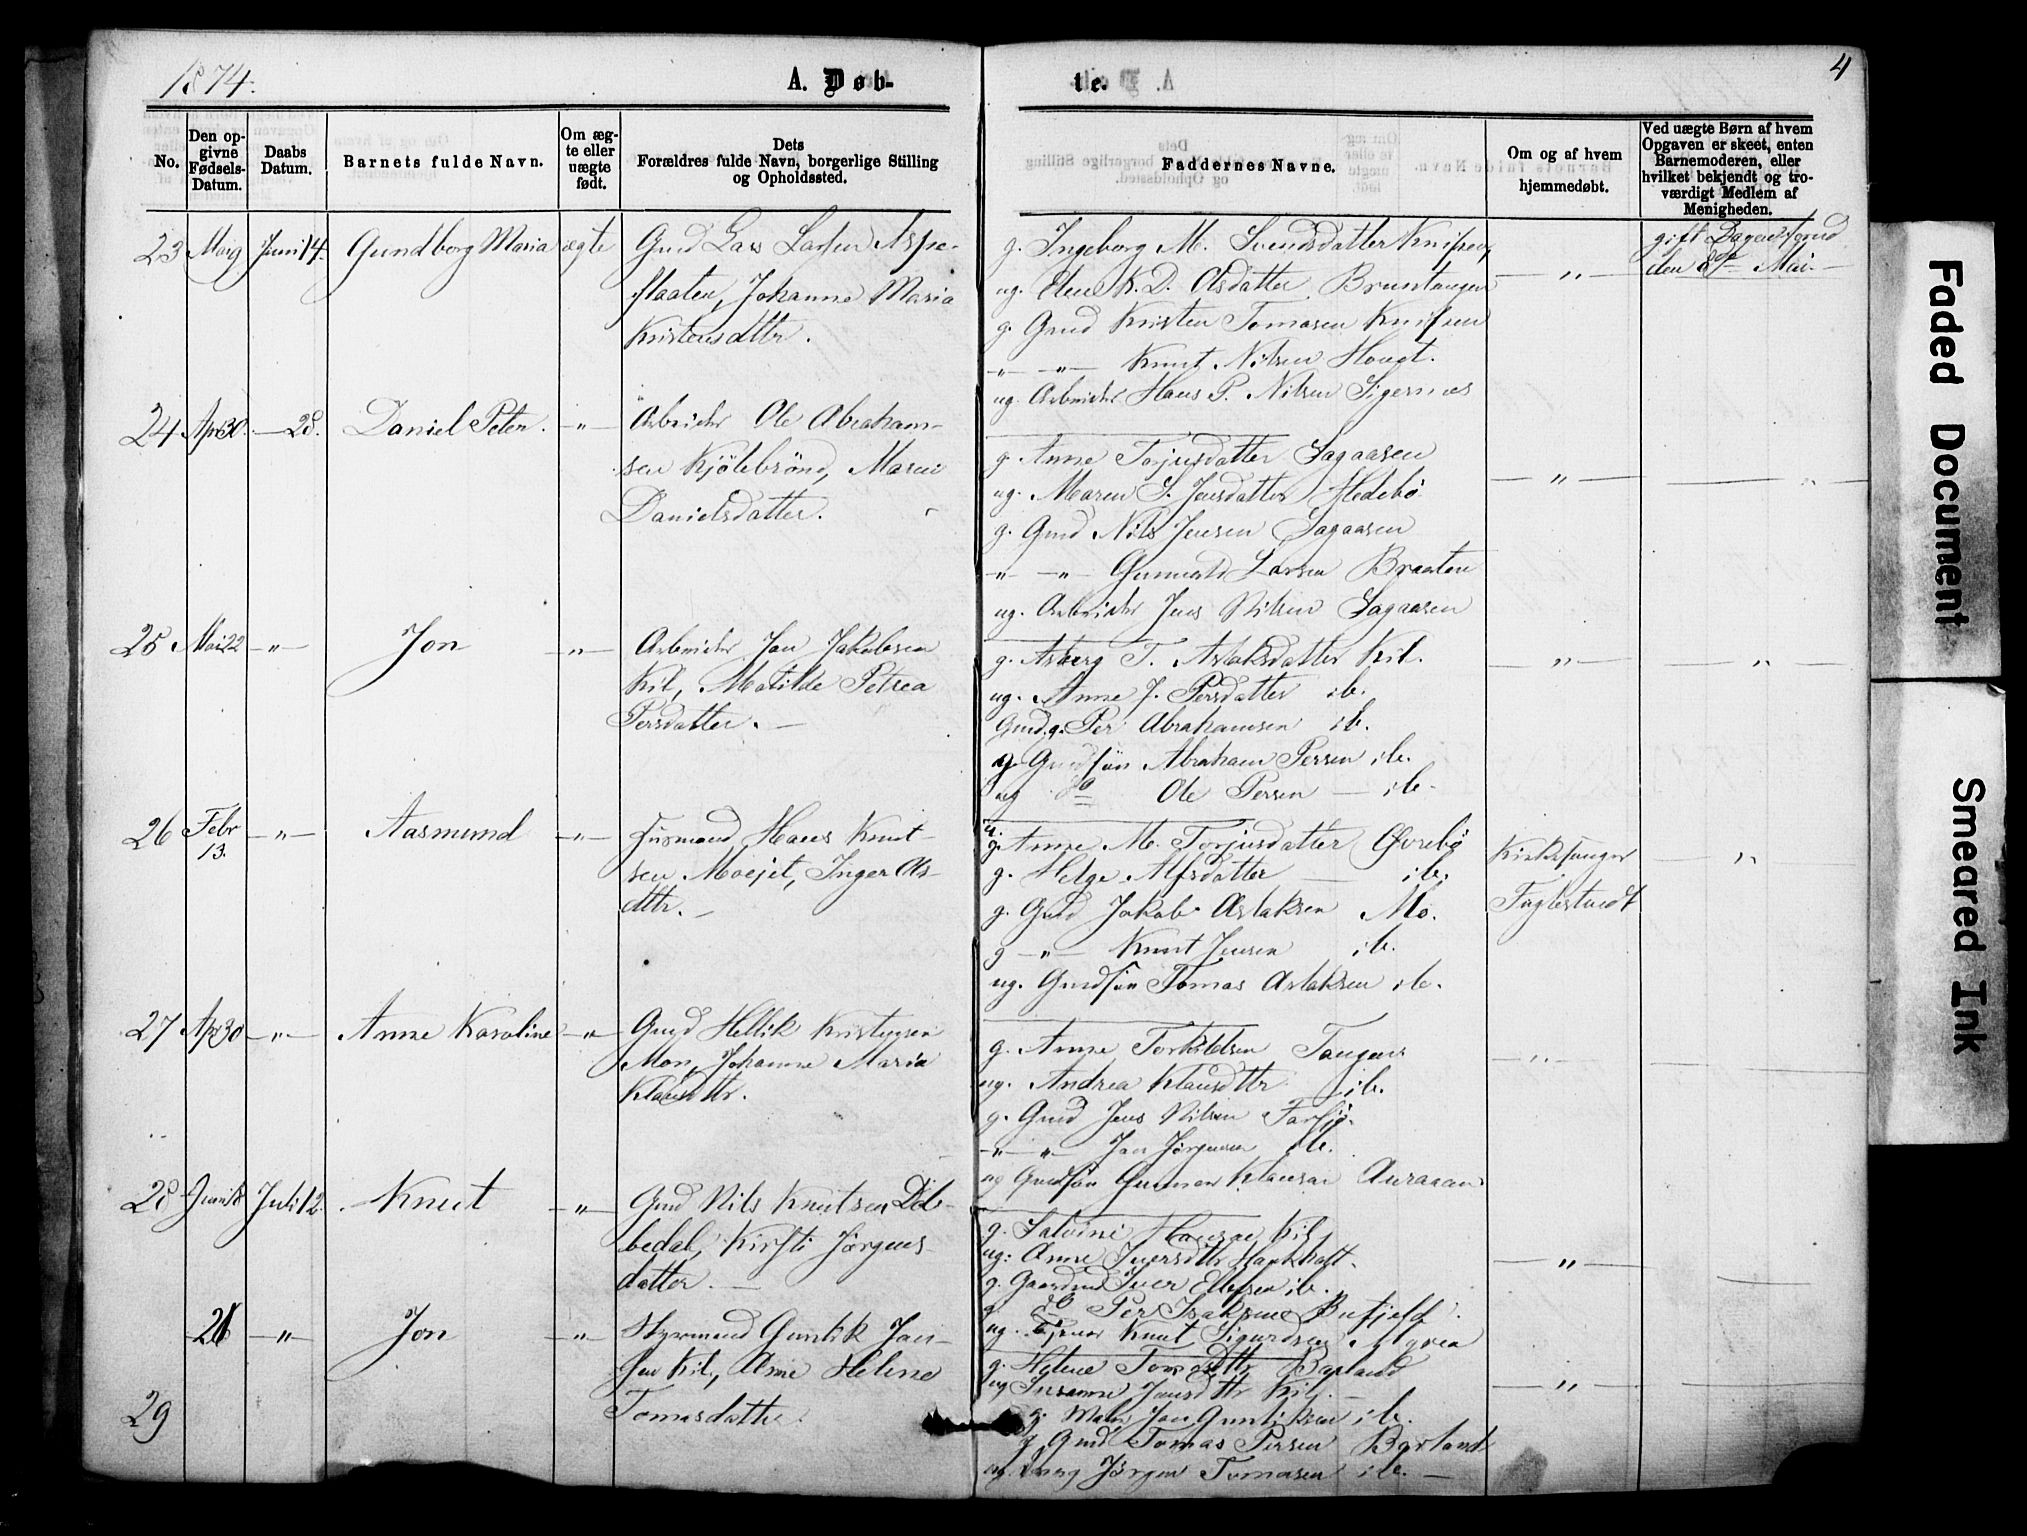 1874.
A. Døb-
te.
4
No.
Den op-
givne
Fødsels-
Datum.
Daabs
Datum.
Barnets fulde Navn.
Om æg-
te eller
uægte
født.
Dets
Forældres fulde Navn, borgerlige Stilling
og Opholdssted.
Faddernes Navne.
Om og af hvem
hjemmedøbt.
Ved uægte Børn af hvem
Opgaven er skeet, enten
Barnemoderen, eller
hvilket bekjendt og tro-
værdigt Medlem af
Menigheden.
23 Mai 9 Juni 14. Gundborg Maria ægte Gmd Lars Larsen Aspe-
flaaten, Johanne Maria
Kristensdttr.
g. Ingeborg M. Svendsdatter Knipen,
ug. Elen K. D. Olsdatter Bruntangen
g. Gmd Kristen Tomasen Knipen
—"— —"— Knut Nilsen Hougt.
ug. Arbeider Hans P. Nilsen Sigernæs
—"—
gift
den 8de Mai.
24 Apr 30. — 28. Daniel Peter. —"— Arbeider Ole Abraham-
sen Kjölebrönd, Maren
Danielsdatter.
g. Anne Torjusdatter Sagaasen
ug. Maren S. Jensdatter Hedebö
g. Gmd Nils Jensen Sagaasen
—"— —"— Gunnuld Larsen Braaten
ug. Arbeider Jens Nilsen Sagaasen
—"—
—"—
25 Mai 22 —"— Jon —"— Arbeider Jan Jakobsen
Kil, Matilde Petrea
Persdatter. —
g. Asberg T. Aslaksdatter Kil.
ug. Anne J. Persdatter ib.
Gmd. g. Per Abrahamsen ib.
g. Gmdsön Abraham Persen ib.
ug do Ole Persen — ib.
—"—
—"—
26 Febr
13. —"— Aasmund —"— Husmand Hans Knut-
sen Moejet, Inger As-
dttr. —
g. Anne M. Torjusdatter Øvrebö
g. Helge Alfsdatter — ib.
g. Gmd Jakob Aslaksen Mo.
g —"— Knut Jensen ib.
ug. Gmdsön Tomas Aslaksen ib.
Kirkesanger
Fuglestvedt
—"—
27 Apr 30 —"— Anne Karoline —"— Gmd Hellik Kristensen
Mon, Johanne Maria
Klausdttr.
g. Anne Torkildsen Tangen
ug. Andrea Klausdttr ib.
g. Gmd Jens Nilsen Farsjö.
—"— " Jan Jörgensen ib.
ug Gmdsön Gunnar Klausen
—"—
28 Juni Juli 12. Knut —"— Gmd Nils Knutsen Döl-
bedal, Kirsti Jörgens-
datter. —
g. Salvine Hansen Kil,
ug: Anne Iversdttr
g. Gaardmd Iver Ellefsen ib.
g. do Per Isaksen Bufjeld.
ug. Tjener Knut Sigurdsen
—"—
21 —"— Jon —"— Styrmand Guntik Jan-
sen Kil, Anne Helene
Tomasdatter.
29
g. Helene Tomasdttr Barland
ug Susanne Jansdttr Kil. —
g. Matr. Jan Guntiksen ib.
g. Gmd Tomas Persen Barland
ug. Jörgen Tomasen ib. —
—"—
Faded Document
Smeared Ink